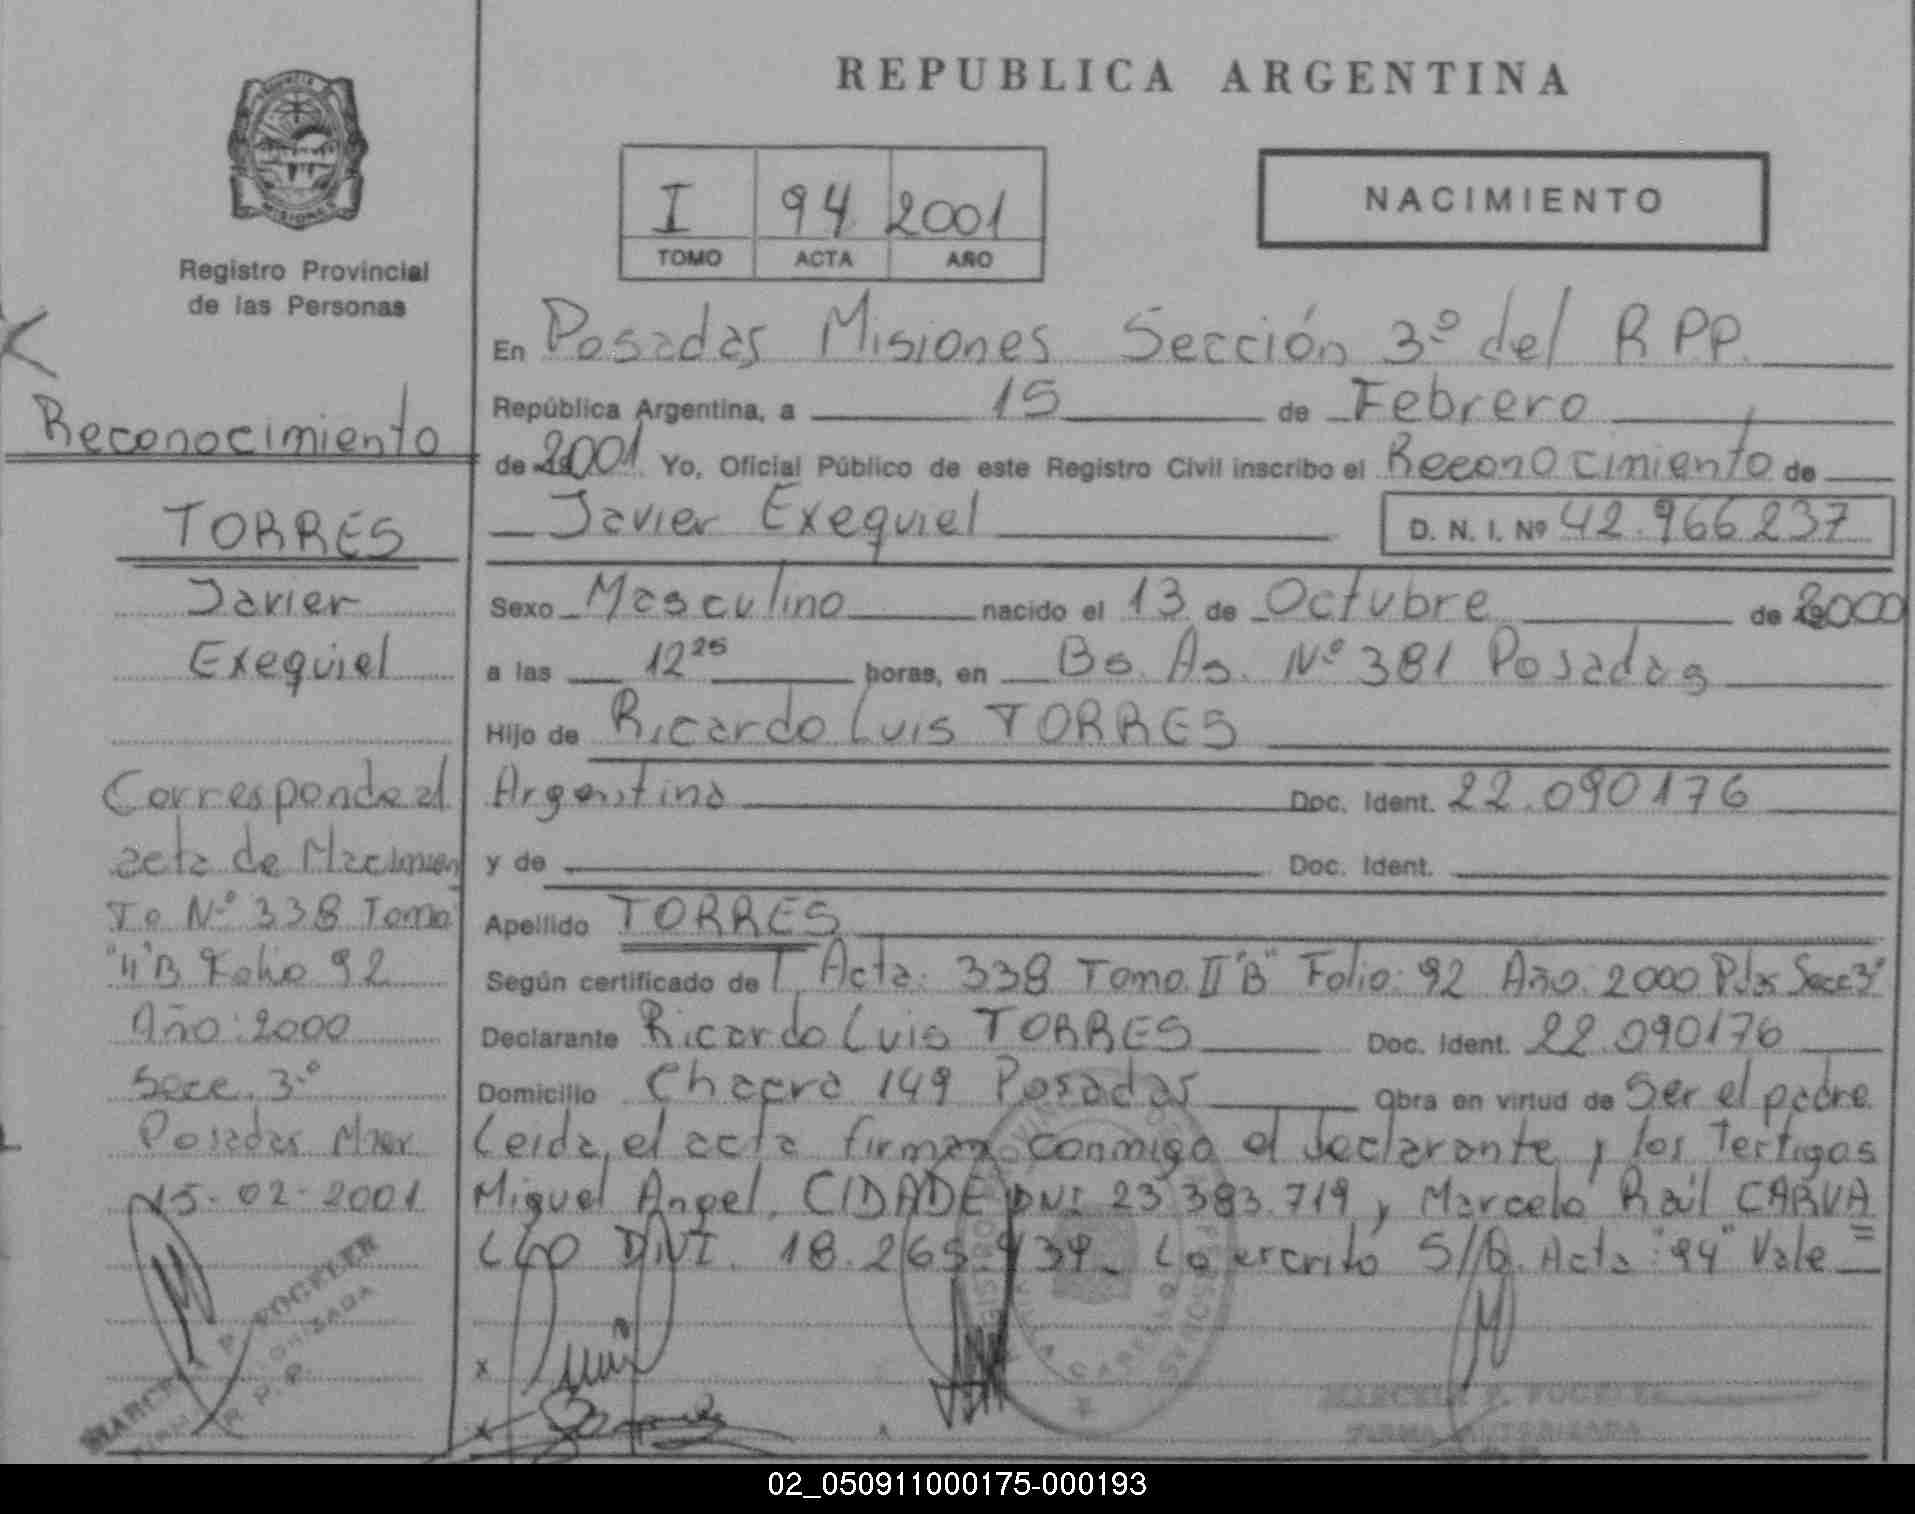 REPUBLICA ARGENTINA
I 94 2001
TOMO ACTA AÑO
NACIMIENTO
MISIONES
Registro Provincial
de las Personas
Reconocimiento
TORRES
Javier
Exequiel
Corresponde al
acta de Nacimien
To Nº 338 Tomo
"II" B Folio 92
Año: 2000
Secc. 3º
Posadas Mnes
15-02-2001
En Posadas Misiones Sección 3º del R P.P.
República Argentina, a 15 de Febrero
de 2001 Yo, Oficial Público de este Registro Civil inscribo el Reconocimiento de
Javier Exequiel D. N. I. Nº 42.966.237
Sexo Masculino nacido el 13 de Octubre de 2000
a las 12 25 horas, en Bs. As. Nº 381 Posadas
Hijo de Ricardo Luis TORRES
Argentino Doc. Ident. 22.090176
y de Doc. Ident.
Apellido TORRES
Según certificado de Acta: 338 Tomo II "B" Folio: 92 Año: 2000 Pdas Secc 3º
Declarante Ricardo Luis TORRES Doc. Ident. 22.090176
Domicilio Chacra 149 Posadas Obra en virtud de Ser el padre
Leida el acta firman conmigo el declarante y los Testigos
Miguel Angel CIDADE DNI 23.383.719 y Marcelo Raúl CARVA
LLO DNI. 18.265.939_ Lo escrito S/B. Acta "94" Vale =
MARCELA P. FOGELER
FIRMA AUTORIZADA
R. P. P.
MARCELA P. FOGELER
FIRMA AUTORIZADA
02_050911000175-000193